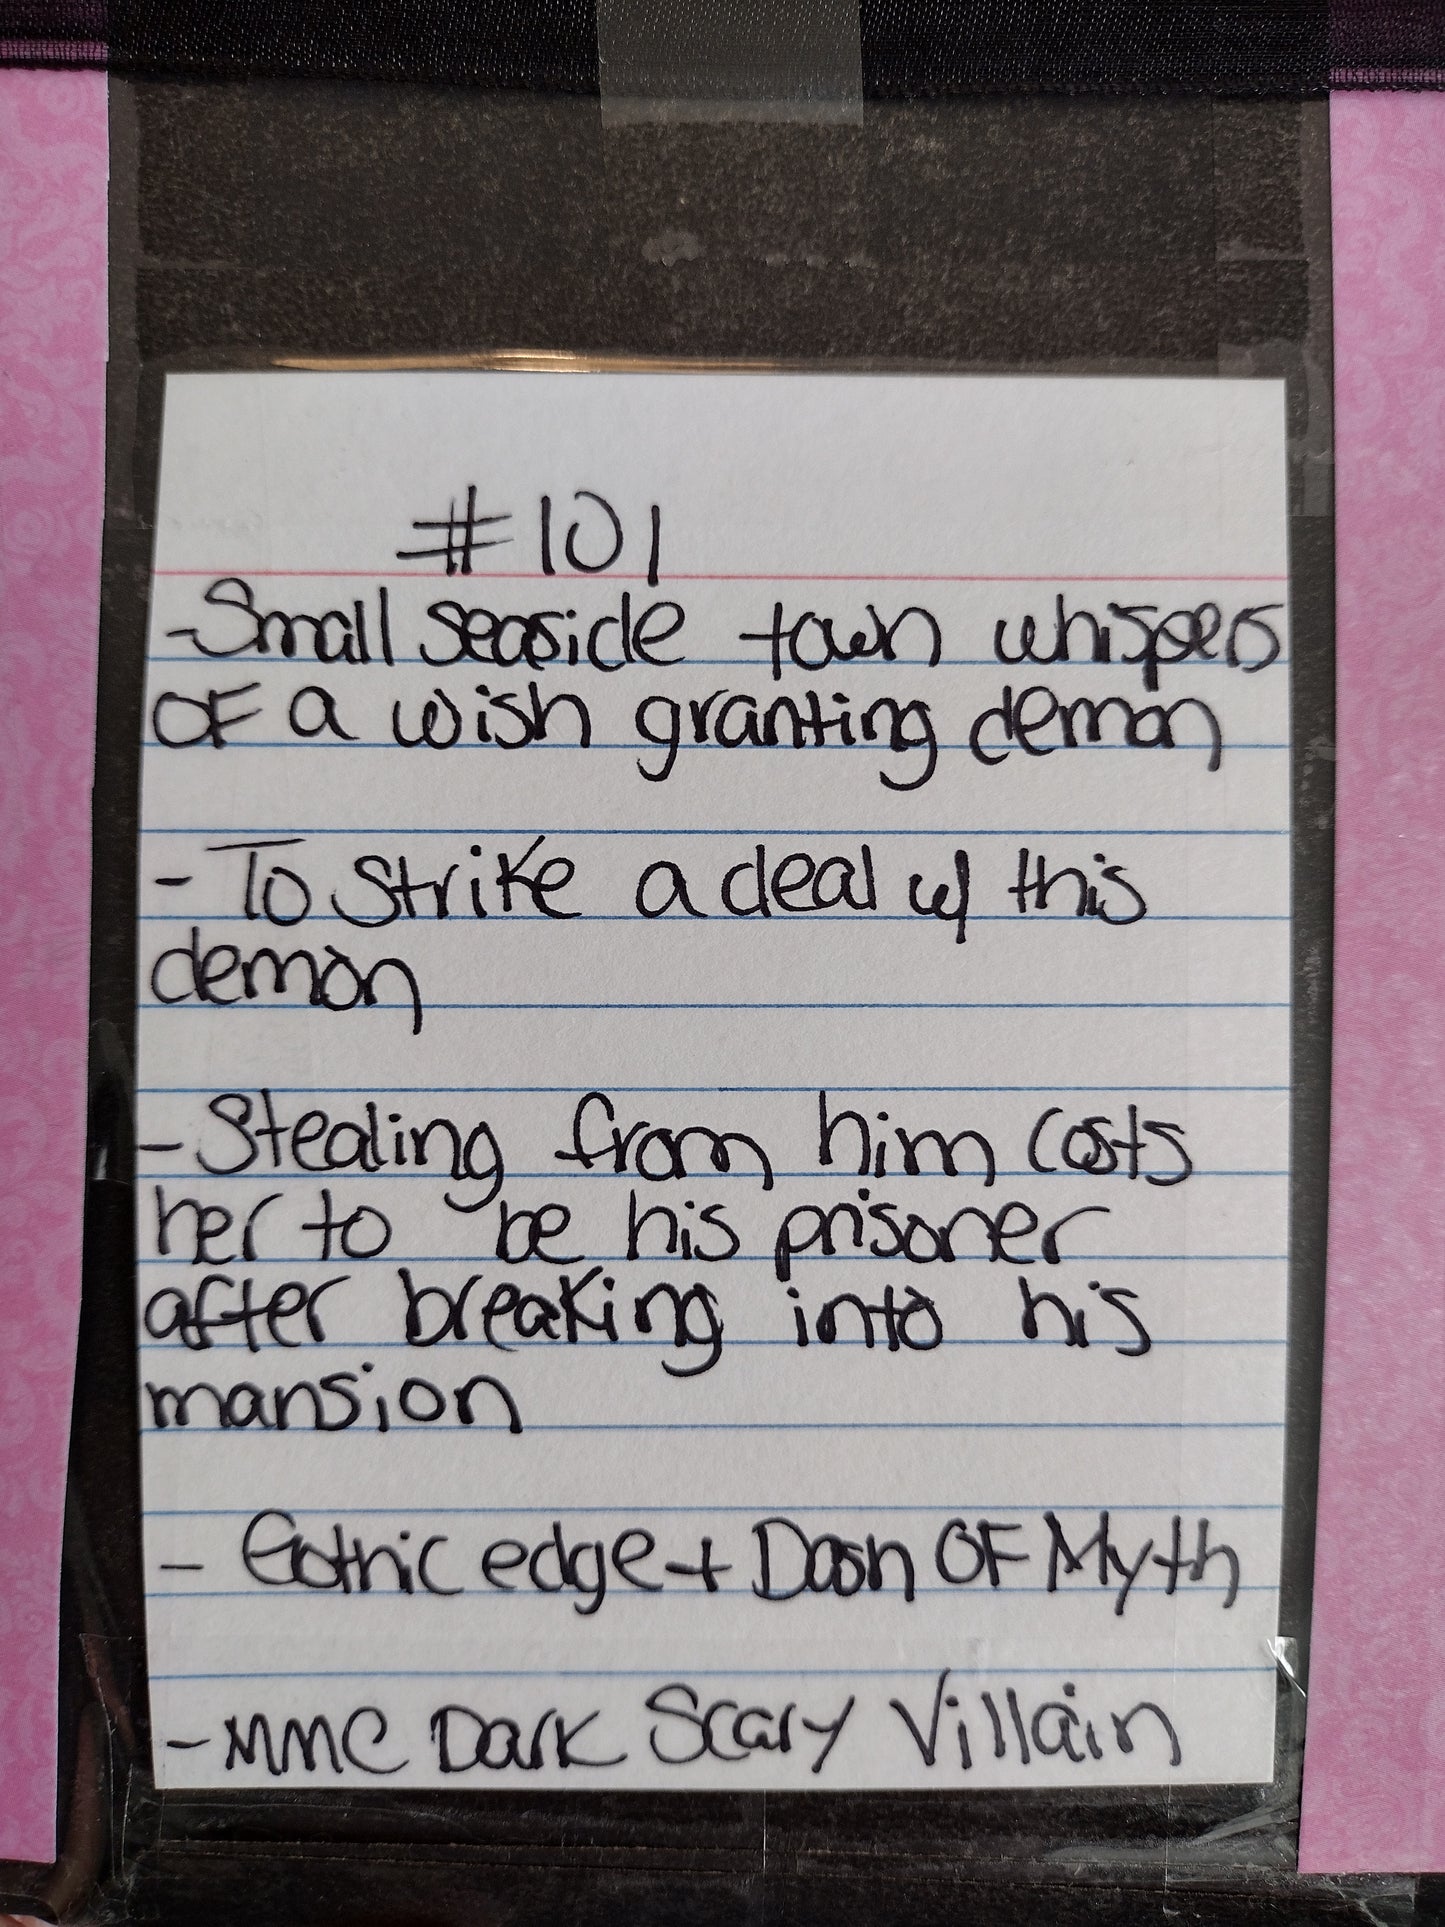 #101
-Small seaside town whispers
OF a wish granting demon
- To strike a deal w/ this
demon
- Stealing from him costs
her to be his prisoner
after breaking into his
mansion
- Gothic edge + Dash OF Myth
- MMC Dark Scary Villain